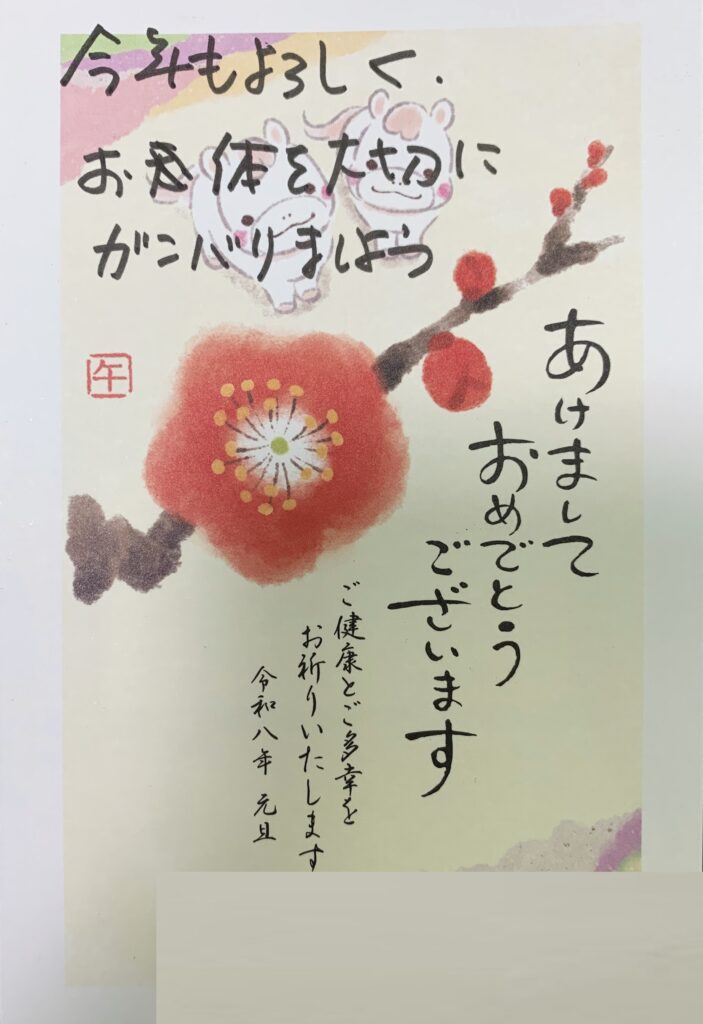 今年もよろしく.
お身体を大切に
ガンバりましょう
午
あけまして
おめでとう
ございます
ご健康とご多幸を
お祈りいたします
令和八年 元旦